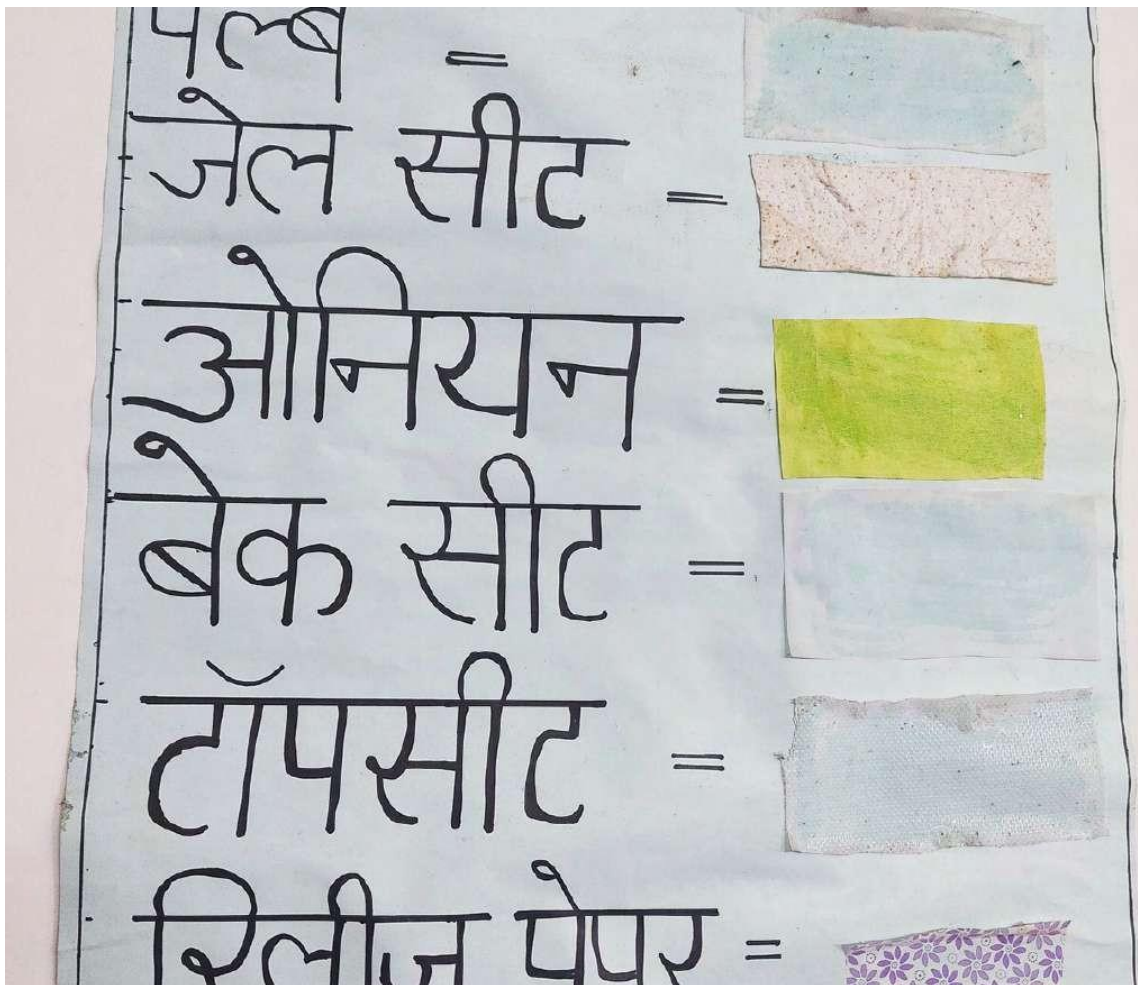 पल्ब =
जेल सीट =
ओनियन =
बेक सीट =
टॉपसीट =
रिलीज पेपर =